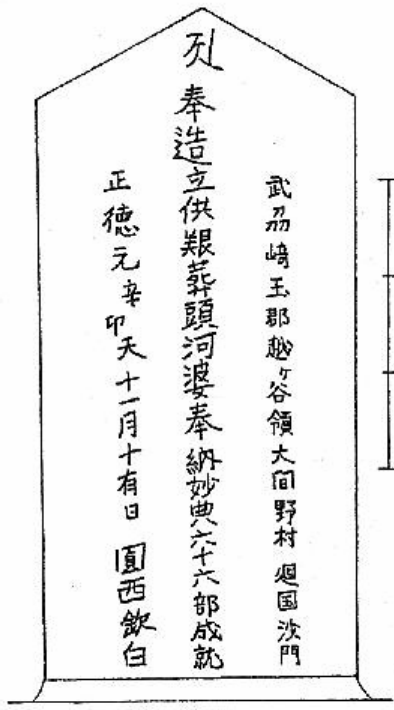 武刕﨑玉郡越ヶ谷領大间野村 廻国沙門
奉造立供艱葬頭河婆奉納妙典六十六部成就
正徳元辛卯天十一月十有日 圓西欽白